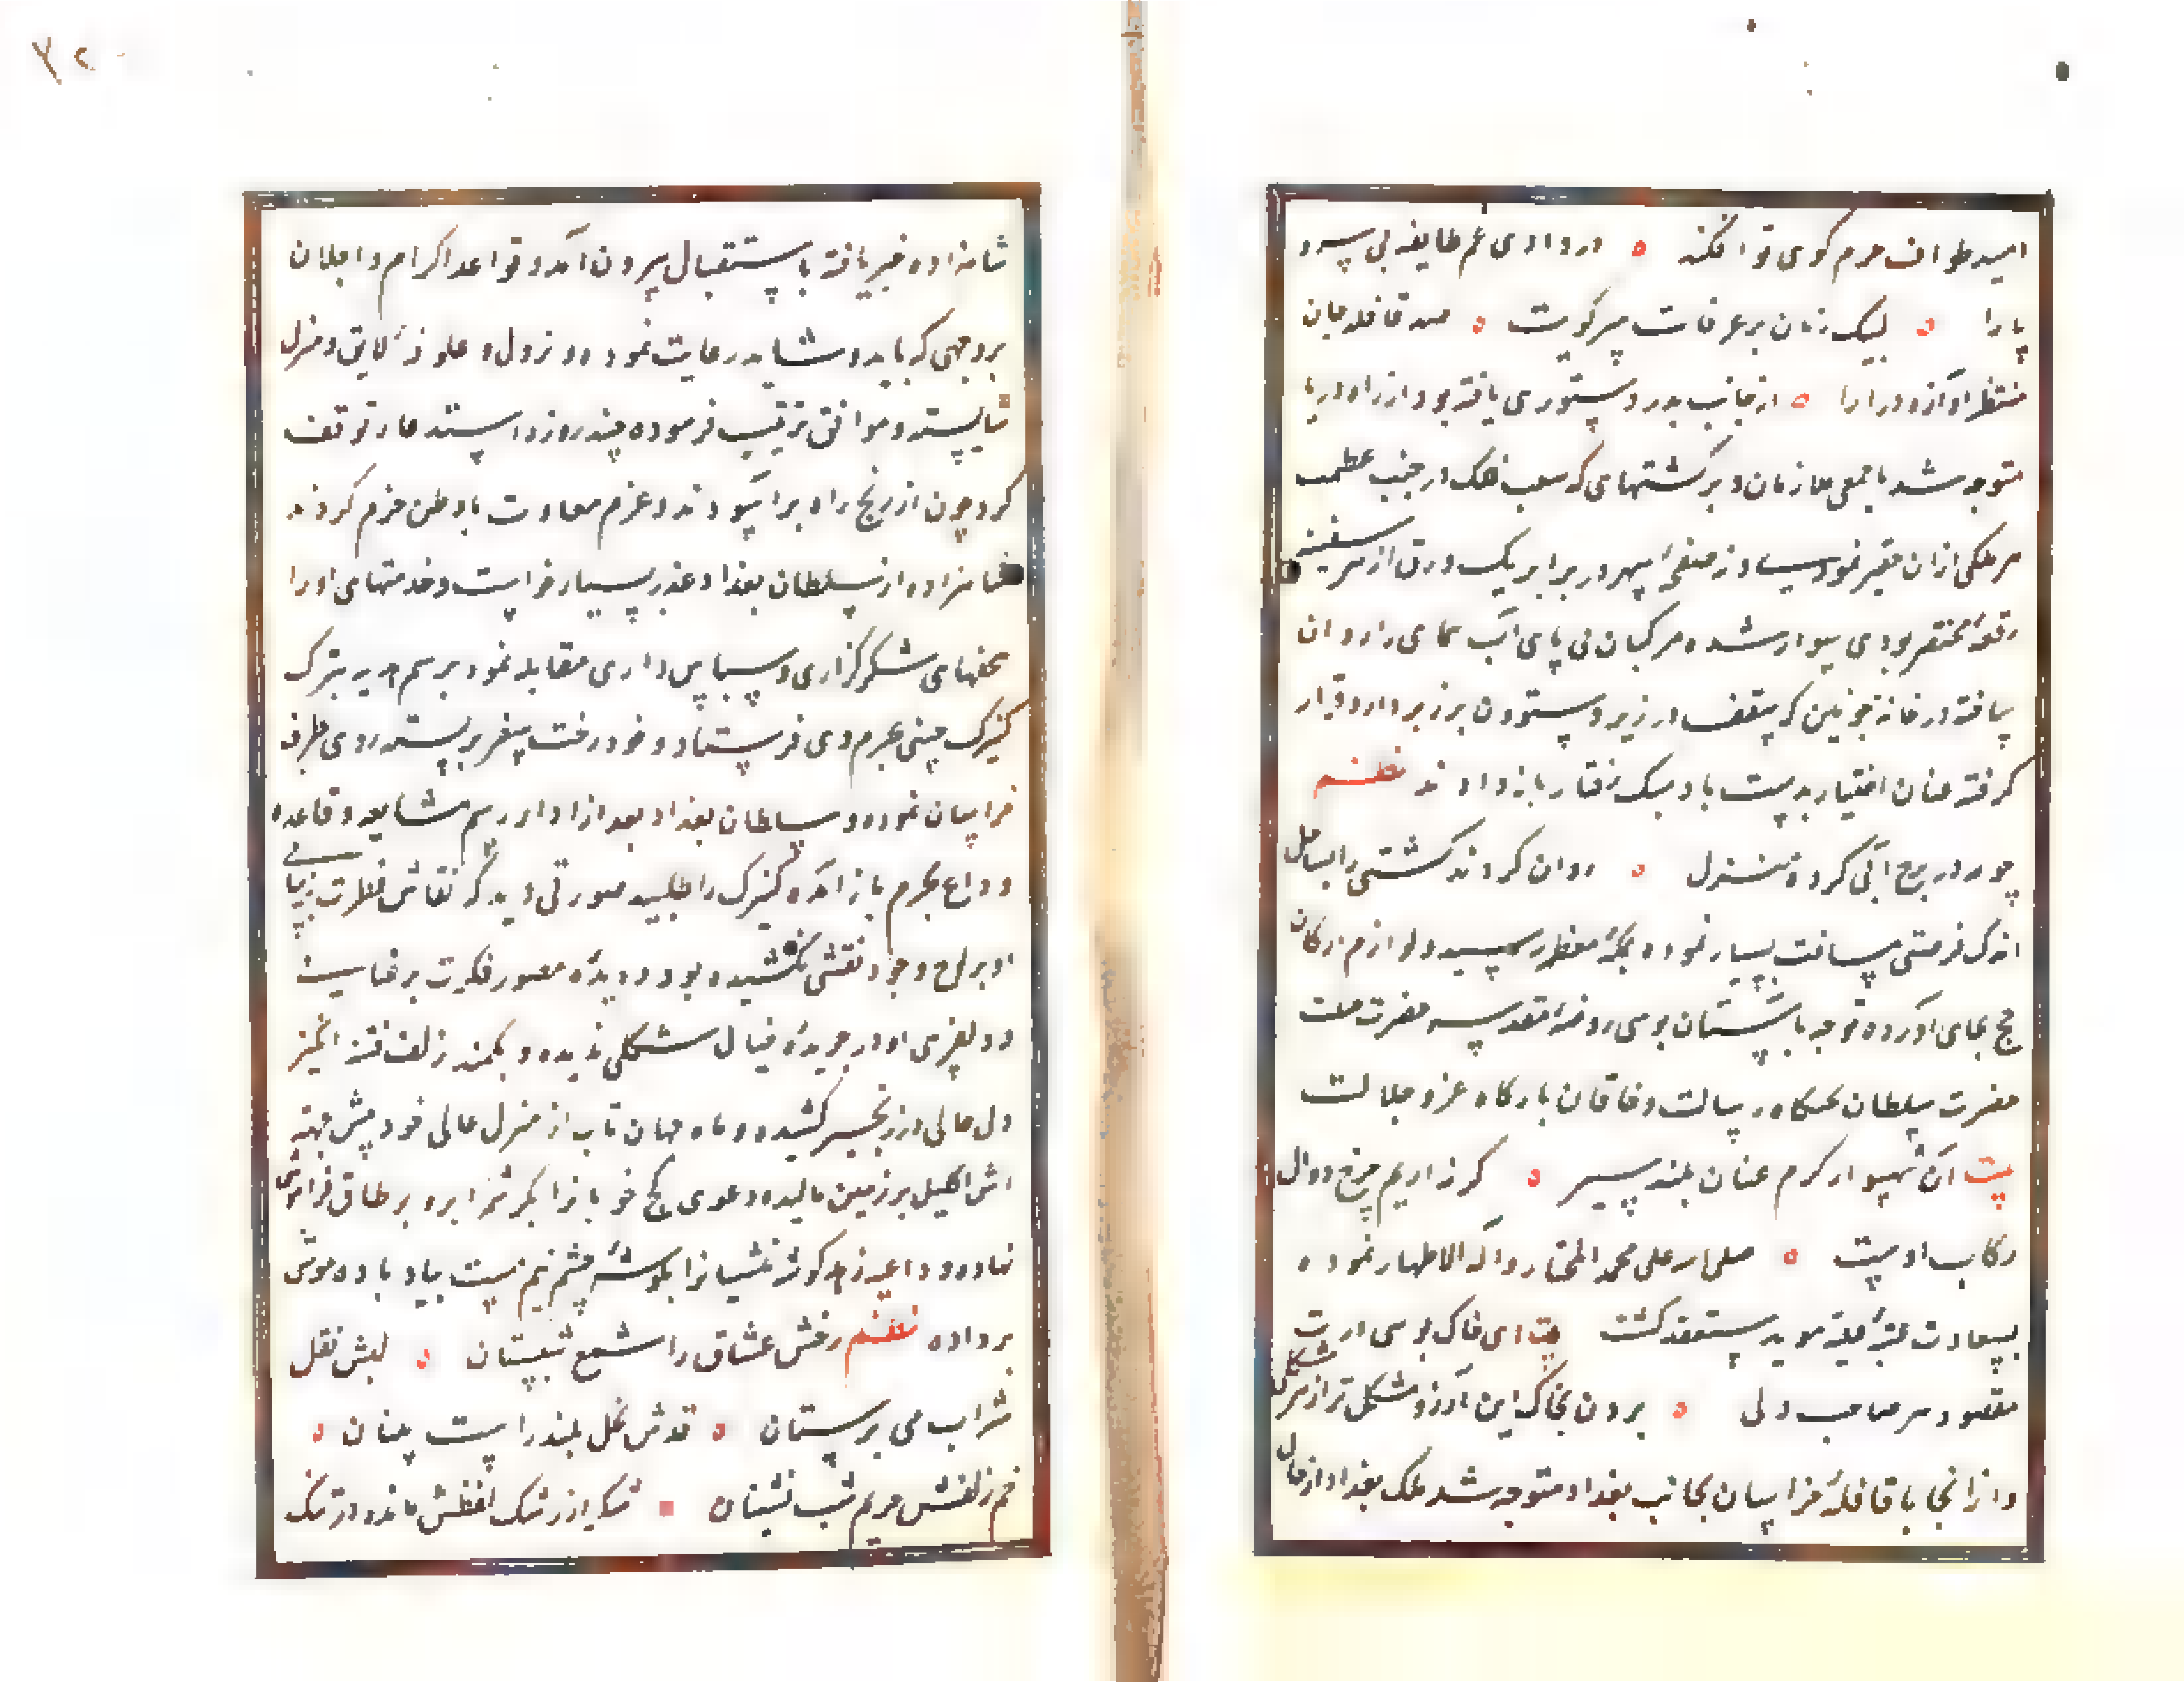 امید طواف حرم کوی تو افکند ه در وادی غم طایفه بی سر و
پا را ه لبیک زنان بر عرفات سر کویت ه صد قافله جان
منتظر آواز درا را ه از جانب پدر دستوری یافته بود از راه دریا
متوجه شد با جمعی ملازمان و بر کشتیهای که سعت فلک در جنب عظمت
هر یکی از آن حقیر نمودی و نه صفحهٔ سپهر در برابر یک ورق از هر سفینه
رقعهٔ مختصر بودی سوار شده مرکبان بی پای آب پیمای را روان
یافته در خانهٔ چوبین که سقف در زیر و ستون بر زبر دارد قرار
گرفته عنان اختیار بدست باد سبک رفتار باز دادند نظم
چو مه در برج آبی کرده منزل ه روان کردند کشتی را بساحل
اندک فرصتی مسافت بسیار نموده بمکهٔ معظم رسید و لوازم ارکان
حج بجای آورده توجه بآستان بوسی روضهٔ مقدسه حضرت رسالت
حضرت سلطان تختگاه رسالت و خاقان بارگاه عز و جلالت
بیت آن شهسوار کرم عنان بلند سیر ه کز ادیم چرخ دوال
رکاب اوست ه صلی الله علی محمد المختار و آله الاطهار نموده
بسعادت عتبهٔ علیه مؤید مستسعد گشت بیت ای خاک بوسی درت
مقصود هر صاحب دلی ه بردن بخاک این آرزو مشکل تر از هر مشکلی
و از آنجا با قافلهٔ خراسان بجانب بغداد متوجه شد ملک بغداد از حال
شاهزاده خبر یافته باستقبال بیرون آمد و قواعد اکرام و اجلال
بر وجهی که باید و شاید رعایت نموده و نزول و علوفهٔ لایق و منزل
شایسته و موافق ترتیب فرموده چند روزه استدعاء توقف
کرد چون از رنج راه برآسودند و عزم معاودت باوطن جزم کردند
شاهزاده از سلطان بغداد عذر بسیار خواست و خدمتهای او را
بتحفهای شکرگزاری و سپاس داری مقابله نمود برسم هدیه بترک
کنیزک چینی بحرم وی فرستاد و خود رخت سفر بربسته روی بطرف
خراسان نموده و سلطان بغداد بعد از اداء رسم مشایعه و قاعدهٔ
وداع بحرم باز آمده کنیزک را طلبید صورتی دید که نقاش فطرت بزیبایی
او بر لوح وجود نقشی نکشیده بود و دیدهٔ مصور فکرت بر عنایت
و دلفریبی او در جریدهٔ خیال شکلی ندیده و بکمند زلف فتنه انگیز
دل عالی در زنجیر کشیده و ماه جهان تاب از منزل عالی خود پیش جبهه
اش اکلیل بر زمین مالیده دعوی کج خوبان را بکرشمهٔ ابرو بر طاق فراموشی
نهاده و داعیه زهد گوشه نشینان را بگوشهٔ چشم نیم مست بباد باده نوشی
بر داده نظم رخش عشاق را شمع شبستان ه لبش نقل
شراب می پرستان ه قدش نخل بلند راست بینان ه
خم زلفش حریم شب نشینان ه شکر از رشک لفظش مانده در تنگ